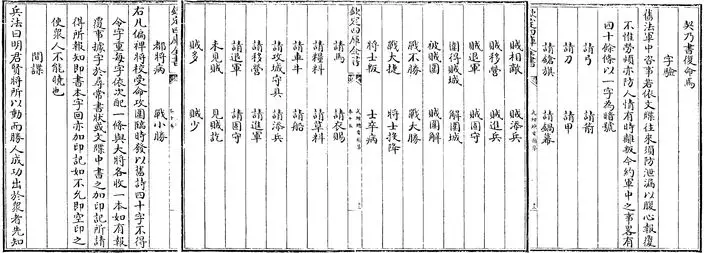 契乃書復命焉
字驗
舊法軍中咨事若依文牒往來須防泄漏以腹心報覆
不惟勞煩亦防人情有時離叛今約軍中之事畧有
四十餘條以一字為暗號
請弓 請箭
請刀 請甲
請鎗旗 請鍋幕
賊相敵 賊添兵
賊移營 賊進兵
賊退軍 賊固守
圍得賊城 解圍城
被賊圍 賊圍解
戰不勝 戰大勝
戰大捷 將士投降
將士叛 士卒病
欽定四庫全書
請馬 請衣賜
請糧料 請草料
請車牛 請船
請攻城守具 請添兵
請移營 請進軍
請退軍 請固守
未見賊 見賊訖
賊多 賊少
都將病 戰小勝
右凡偏裨將校受命攻圍臨時發以舊詩四十字不得
令字重每字依次配一條與大將各收一本如有報
覆事據字於尋常書狀或文牒中書之加印記所請
得所報知即書本字回亦加印記如不允即空印之
使衆人不能曉也
間諜
兵法曰明君賢將所以動而勝人成功出於衆者先知